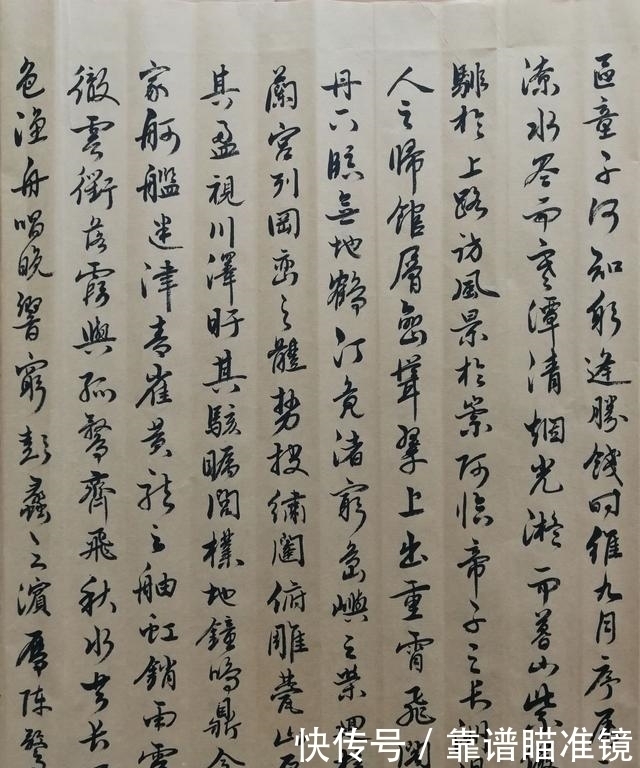 區童子何知躬逢勝餞時維九月序屬
潦水尽而寒潭清烟光凝而暮山紫
騑於上路訪風景於崇阿臨帝子之長洲
人之歸館層巒聳翠上出重霄飛閣
丹下臨無地鶴汀鳧渚窮島嶼之縈迴
蘭宮列岡巒之體勢披繡闥俯雕甍山原
其盈視川澤盱其駭矚閭撲地鐘鳴鼎食
家舸艦迷津青雀黃龍之舳虹銷雨霽
徹雲衢落霞與孤鶩齊飛秋水共長天
色漁舟唱晚響窮彭蠡之濱雁陣驚
快传号 / 靠谱瞄准镜